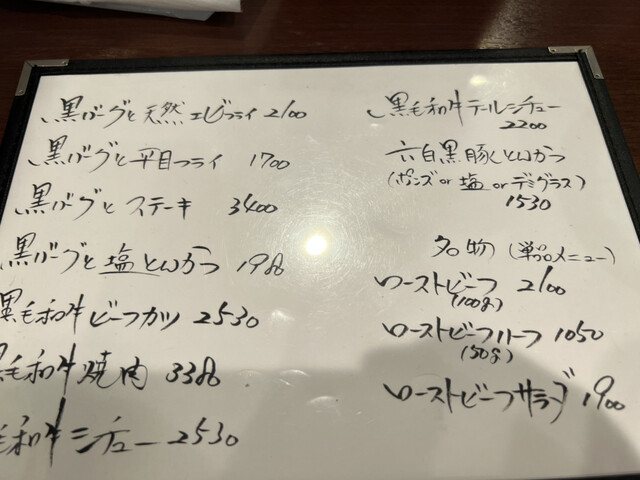 黒バーグと天然エビフライ 2100
黒バーグと平目フライ 1700
黒バーグとステーキ 3400
黒バーグと塩とんかつ 1980
黒毛和牛ビーフカツ 2530
黒毛和牛焼肉 3380
毛和牛シチュー 2530
黒毛和牛テールシチュー
2200
六白黒豚とんかつ
(ポンズor塩orデミグラス)
1530
名物(単品メニュー)
ローストビーフ 2100
(100g)
ローストビーフハーフ 1050
(50g)
ローストビーフサラダ 1900